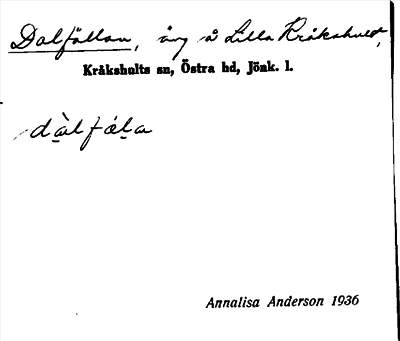 Dalfällan, äng å Lilla Kråkshult,
Kråkshults sn, Östra hd, Jönk. l.
dàlfæla
Annalisa Anderson 1936